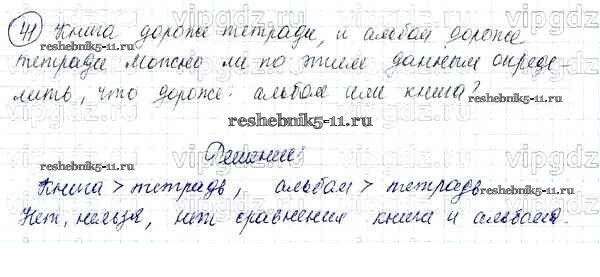 41 Книга дороже тетради, и альбом дороже
тетради. Можно ли по этим данным опреде-
лить, что дороже: альбом или книга?
reshebnik5-11.ru
Решение:
Книга > тетрадь, альбом > тетрадь.
Нет, нельзя, нет сравнения книга и альбома.
vipgdz